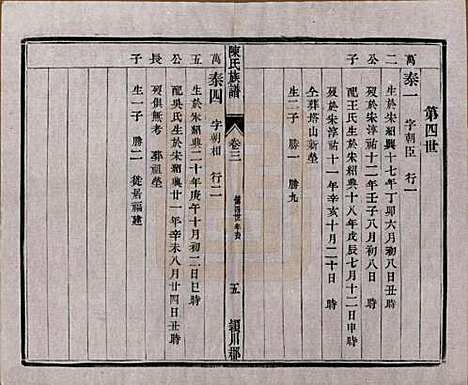 第四世
萬二公子
泰一 字朝臣 行一
生於宋紹興十七年丁卯六月初八丑時
歿於宋淳祐十二年壬子八月初八日時
配王氏生於宋紹興十八年戊辰七月十二日申時
歿於宋淳祐十一年辛亥十月二十日時
仝葬塔山新塋
生二子 勝一 勝九
陳氏族譜 卷三 第四世 五 潁川郡
萬五公長子
泰四 字朝相 行二
生於宋紹興二十年庚午十月初二日巳時
配吳氏生於宋紹興廿一年辛未八月廿四日丑時
歿俱無考 葬祖塋
生一子 勝二 徙居福建